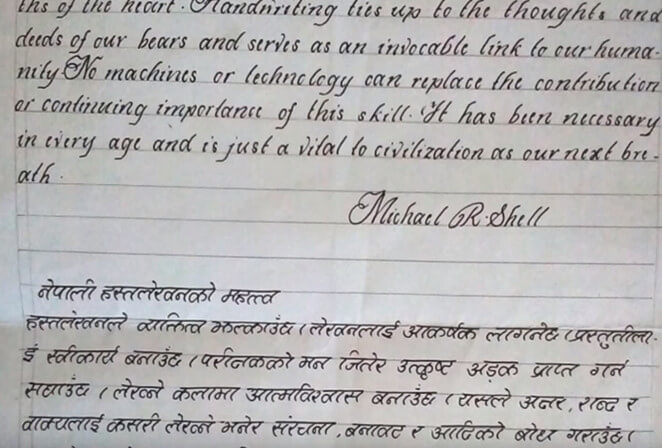 ths of the heart. Handwriting ties up to the thoughts and
deeds of our bears and serves as an invocable link to our huma-
nity No machines or technology can replace the contribution
or continuing importance of this skill. It has been necessary
in every age and is just a vital to civilization as our next bre-
ath.
Michael R. Shell
नेपाली हस्तलेखनको महत्त्व
हस्तलेखनले व्यक्तित्व झल्काउँछ । लेखनलाई आकर्षक लाग्नेछ । प्रस्तुतीला-
ई स्वीकार्य बनाउँछ । परीक्षकको मन जितेर उत्कृष्ट अङ्क प्राप्त गर्न
सघाउँछ । लेख्ने कलामा आत्मविश्वास बनाउँछ । यसले अक्षर, शब्द र
वाक्यलाई कसरी लेख्ने भनेर संरचना, बनावट र आदिको बोध गराउँछ ।